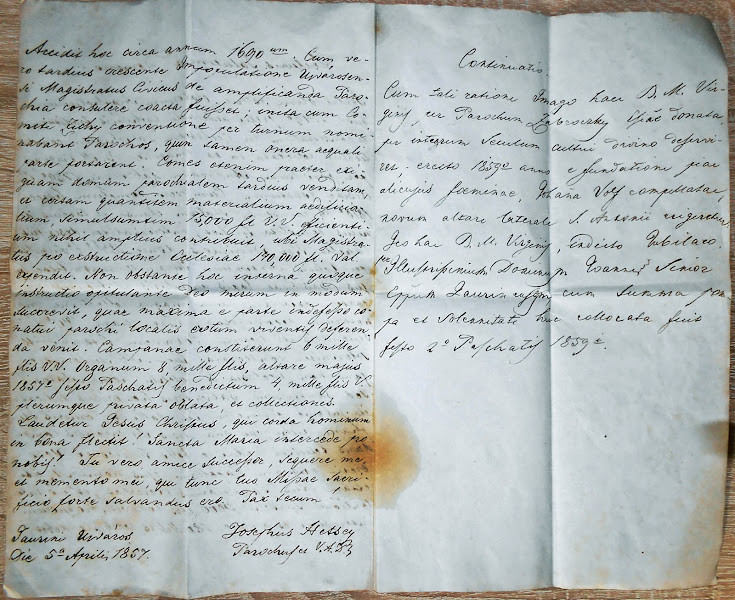 Accidit hoc circa annum 1690um. Cum ve-
ro tardius crescente Impopulatione Ujvarosen-
si Magistratus Civicus de amplificanda Paro-
chia consulere coacta fuisset, inita cum Co-
miti Zichy conventione per turnum nomi-
nabant Parochos, quin tamen onera aequali
parte portarent. Comes etenim praeter ex-
quam domum parochialem tardius venditam,
et certam quantitatem materialium aedilitia-
lium, simulsumtim 15,000 fl V.V. efficienti-
um nihil amplius contribuit, ubi Magistra-
tus pro exstructione Ecclesiae 170,000 fl. Val.
expendit. Non obstante hoc interna quoque
instructio opitulante Deo mirum in modum
succrevit, quae maxima e parte indefesso co-
natui parochi localis viventis deferen-
da venit. Campanae constiterunt 6 mille
flis V.V. Organum 8 mille flis, altare majus
1857o festo Paschatis benedictum 4 mille flis V.
plerumque privata oblata, et collectiones.
Laudetur Jesus Christus, qui corda hominum
in bona flectit! Sancta Maria intercede pro
nobis! Tu vero, amice successor, sequere me,
et memento mei, qui tunc tuo Missae Sacri-
ficio forte salvandus ero. Pax Tecum!
Jaurini Ujváros
Die 5a Aprilis 1857.
Josephus
Parochus
Continuatio.
Cum tali ratione Imago haec B. M. Vir-
ginis, per Parochum donata
per integrum Seculum cultui divino deservi-
ret; erecto 1859o anno e fundatione piae
alicujus foeminae, Johana Volf
novum altare laterale S. Antonii erigeretur
haec B. M. Virginis, indicto Jubilaeo,
per Illustrissimum Dominum Joannem Senior
Eppum Jaurinensem cum summa pom-
pa et solemnitate huc collocata fuit
festo 2o Paschatis 1859o.